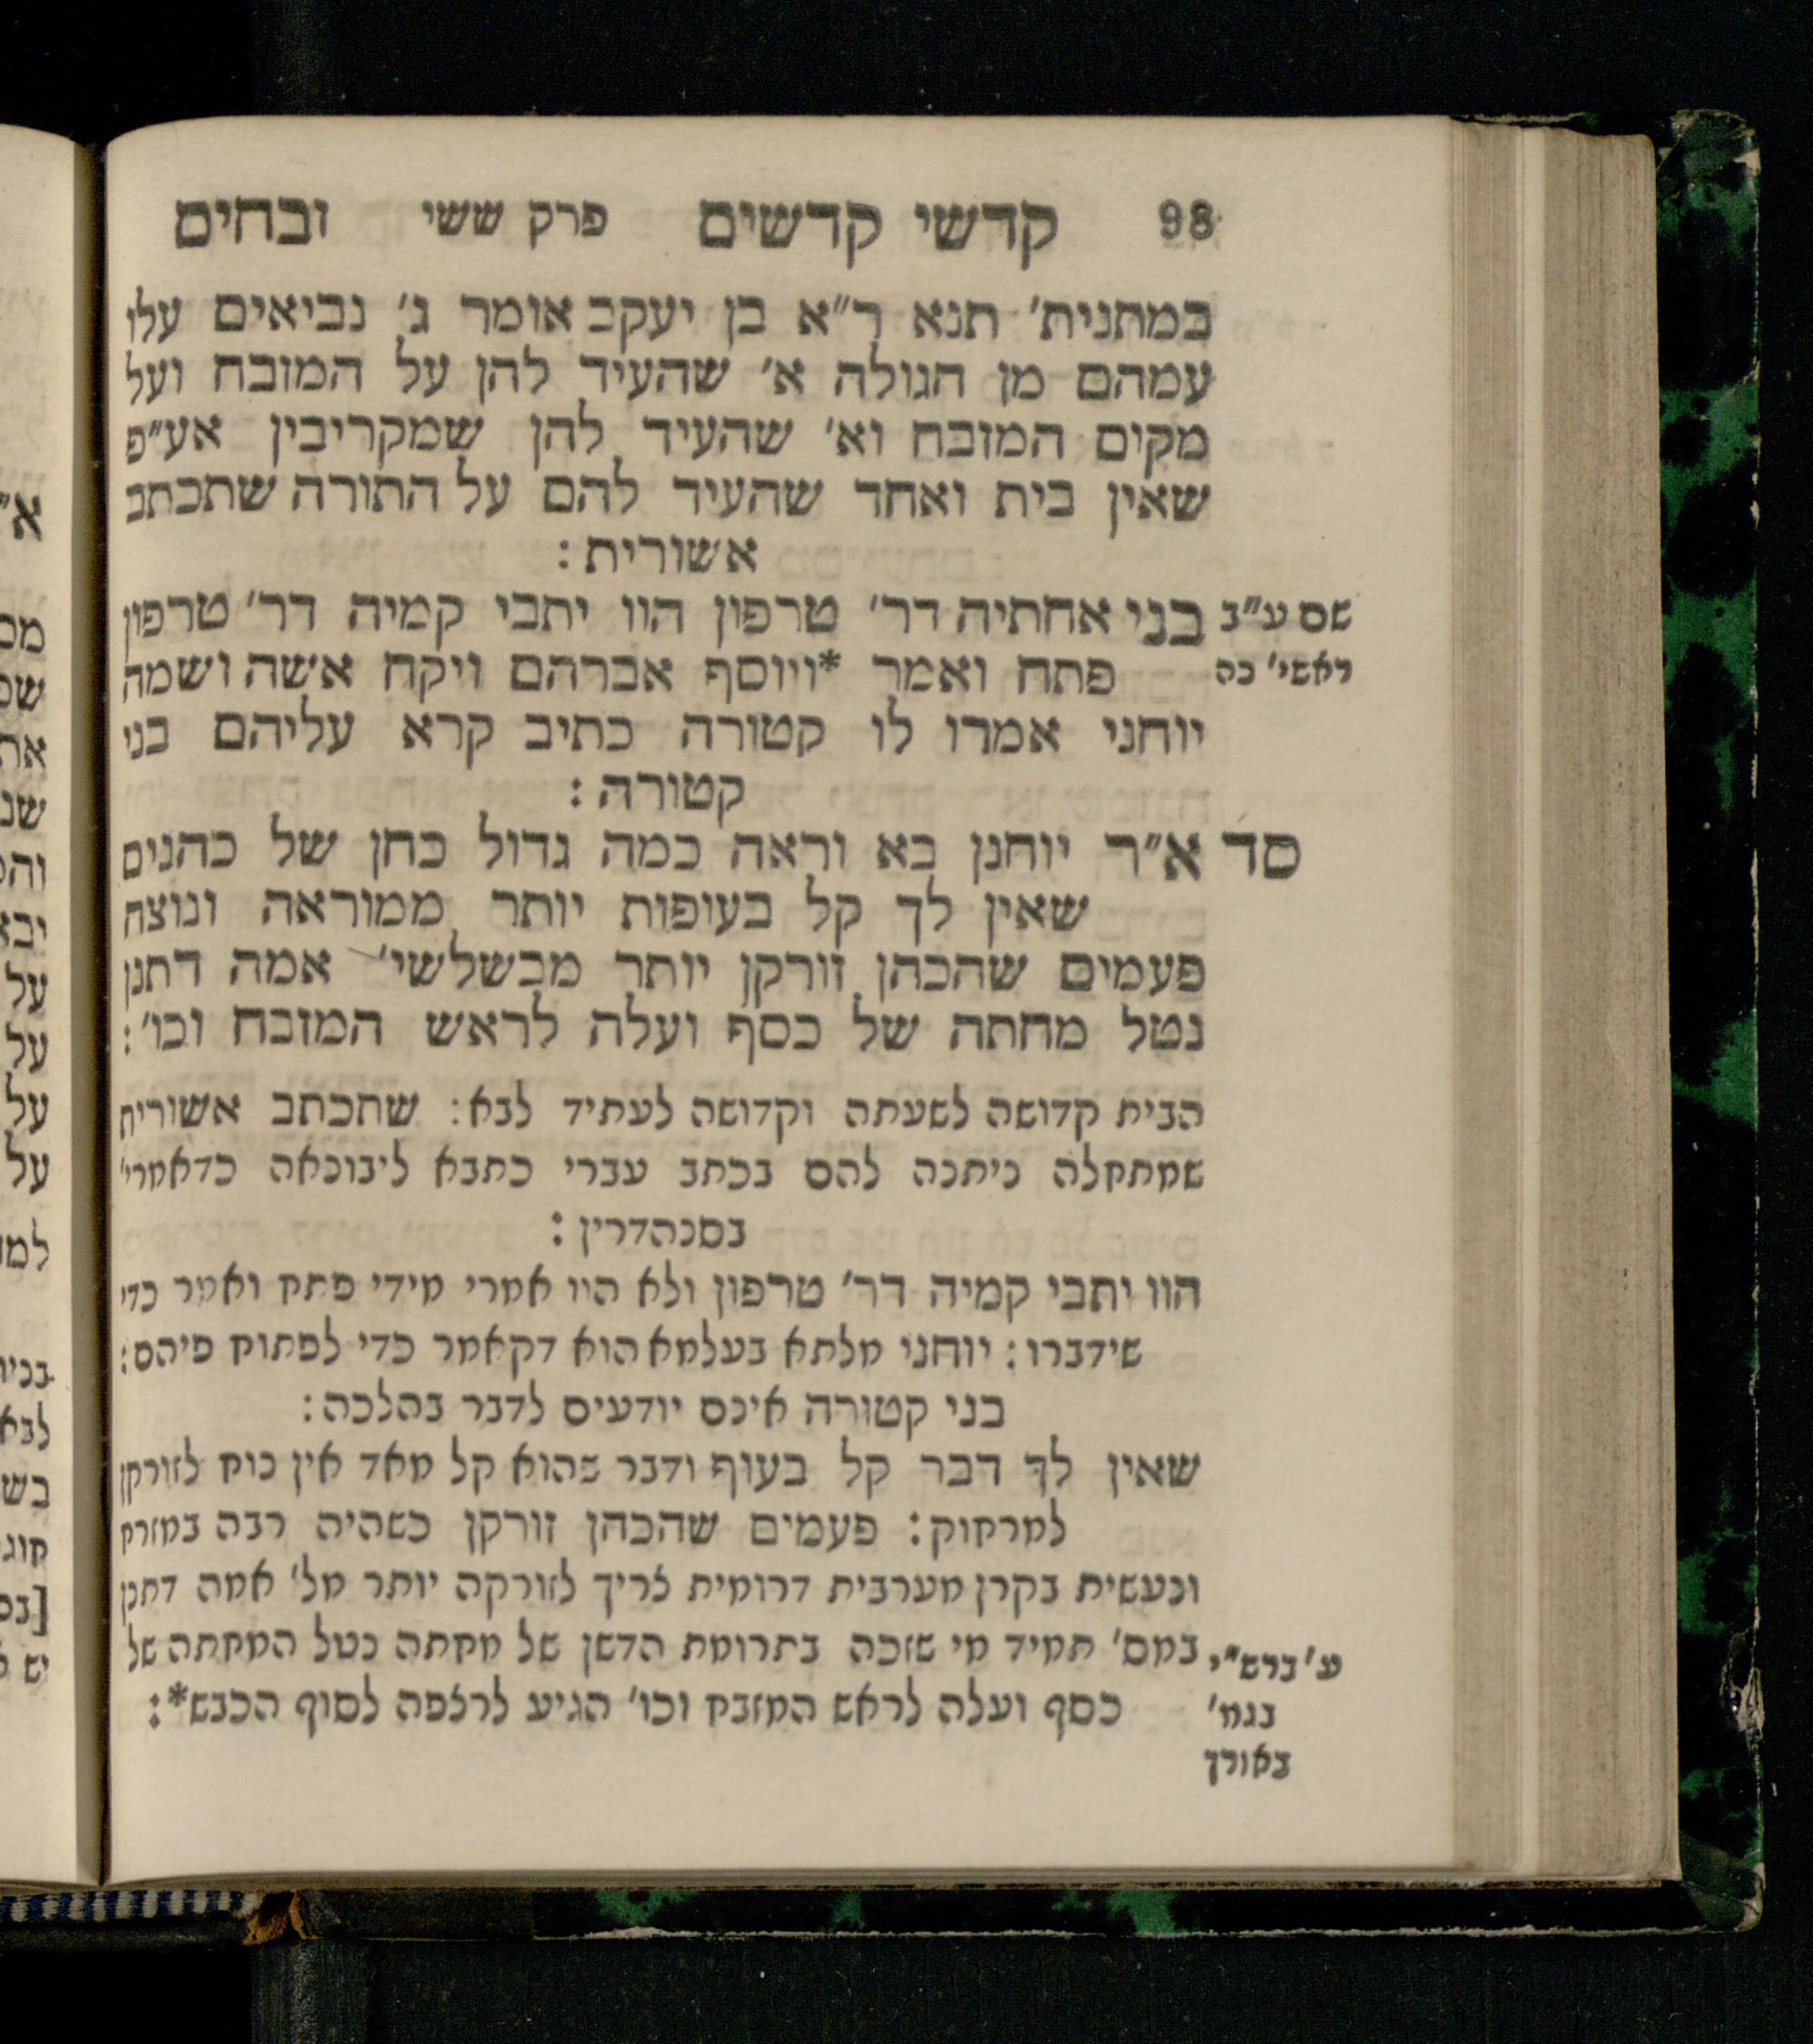 98 קדשי קדשים פרק ששי זבחים
במתנית׳ תנא ר״א בן יעקב אומר ג׳ נביאים עלו
עמהם מן הגולה א׳ שהעיד להן על המזבח ועל
מקום המזבח וא׳ שהעיד להן שמקריבין אע״פ
שאין בית ואחד שהעיד להם על התורה שתכתב
אשורית :
שם ע״ב בני אחתיה דר׳ טרפון הוו יתבי קמיה דר׳ טרפון
ראשי׳ כה פתח ואמר *ויוסף אברהם ויקח אשה ושמה
יוחני אמרו לו קטורה כתיב קרא עליהם בני
קטורה :
סד א״ר יוחנן בא וראה כמה גדול כחן של כהנים
שאין לך קל בעופות יותר ממוראה ונוצה
פעמים שהכהן זורקן יותר מבשלשי׳ אמה דתנן
נטל מחתה של כסף ועלה לראש המזבח וכו׳ :
הבית קדושה לשעתה וקדושה לעתיד לבא : שתכתב אשורית
שמתחלה ניתנה להם בכתב עברי כתבא ליבונאה כדאמרי׳
בסנהדרין :
הוו יתבי קמיה דר׳ טרפון ולא היו אמרי מידי פתח ואמר כדי
שידברו : יוחני מלתא בעלמא הוא דקאמר כדי לפתוח פיהם :
בני קטורה אינם יודעים לדבר בהלכה :
שאין לך דבר קל בעוף ודבר שהוא קל מאד אין כוח לזורקן
למרחוק : פעמים שהכהן זורקן כשהיה רבה במזרח
ונעשית בקרן מערבית דרומית צריך לזורקה יותר מל׳ אמה דתנן
ע׳ ברש״י במס׳ תמיד מי שזכה בתרומת הדשן של מחתה נטל המחתה של
בגמ׳ כסף ועלה לראש המזבח וכו׳ הגיע לרצפה לסוף הכבש* :
באורך